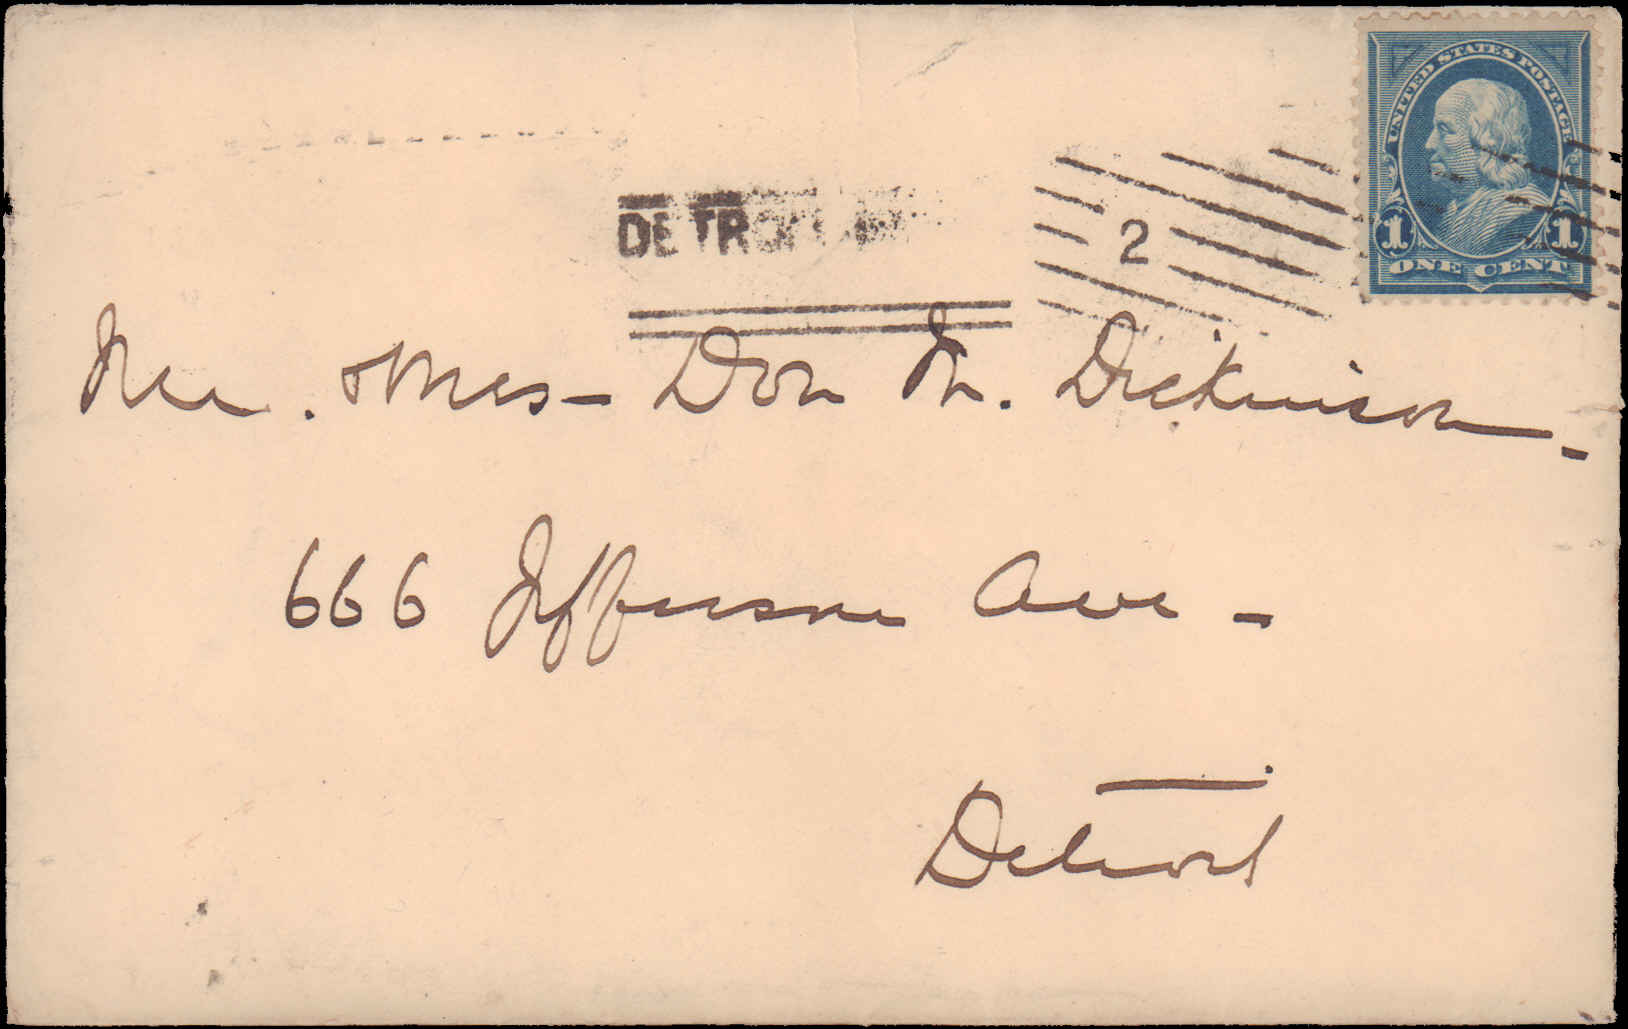 UNITED STATES POSTAGE
1 1
ONE CENT
DETROIT
2
Mr. & Mrs - Don M. Dickinson -
666 Jefferson Ave -
Detroit